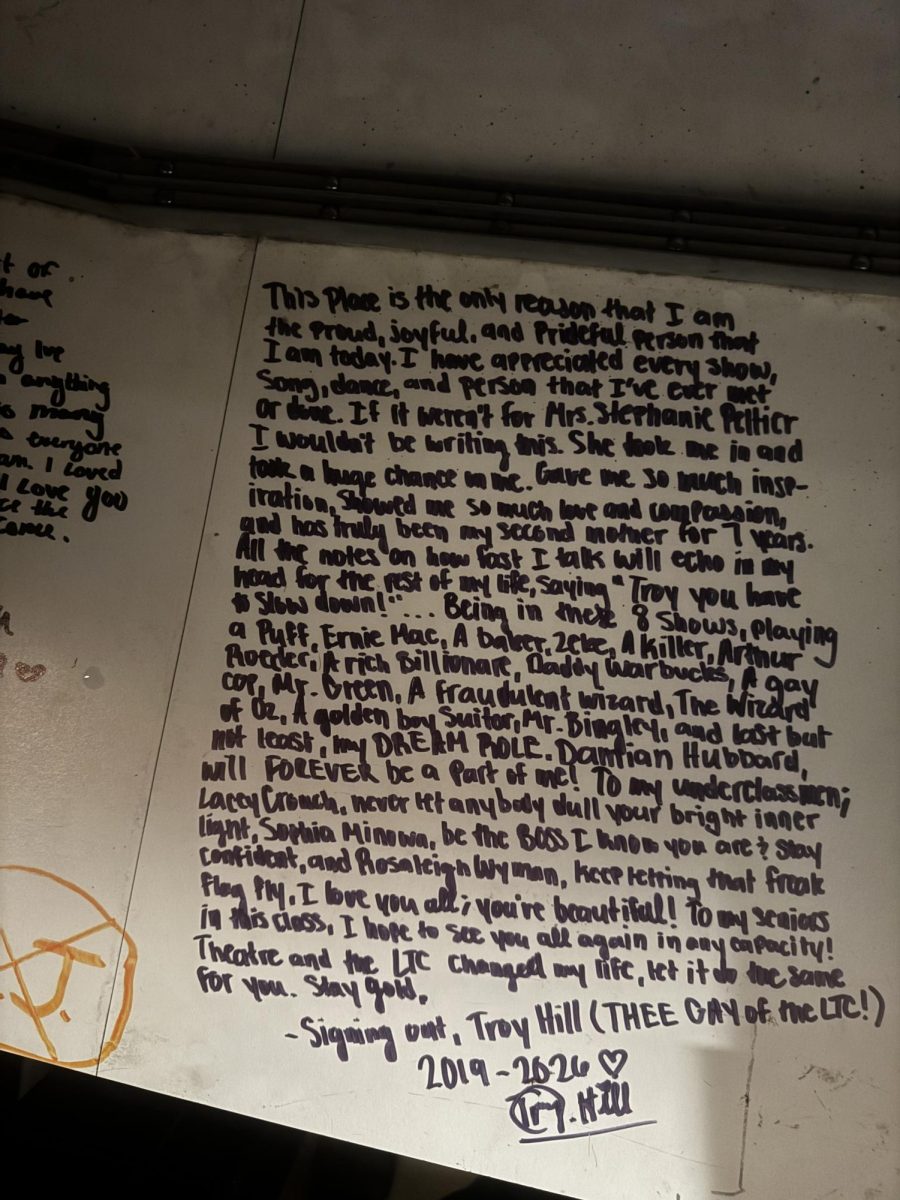 t of
have
ay Ive
anything
many
everyone
am. I loved
I Love you
the
This Place is the only reason that I am
the proud, joyful, and Prideful person that
I am today. I have appreciated every show,
Song, dance, and person that I've ever met
or done. If it weren't for Mrs. Stephanie Peltier
I wouldn't be writing this. She took me in and
took a huge chance on me. Gave me so much insp-
iration, showed me so much love and compassion,
and has truly been my second mother for 7 years.
All the notes on how fast I talk will echo in my
head for the rest of my life, saying "Troy you have
to slow down!"... Being in these 8 Shows, playing
a Puff, Ernie Mac, A baker, Zeke, A killer, Arthur
Roeder, A rich Billionare, Daddy Warbucks, A gay
cop, Mr. Green, A fraudulent wizard, The Wizard
of Oz, A golden boy Suitor, Mr. Bingley, and last but
not least, my DREAM ROLE. Damian Hubbard,
will FOREVER be a part of me! To my underclassmen;
Lacey Crouch, never let anybody dull your bright inner
light, Sophia Minown, be the BOSS I know you are & stay
confident, and Rosaleigh Wyman, keep letting that freak
flag fly. I love you all; you're beautiful! To my seniors
in this class, I hope to see you all again in any capacity!
Theatre and the LTC changed my life, let it do the same
for you. Stay gold.
- Signing out, Troy Hill (THEE GAY of the LTC!)
2019-2026 ♡
Troy. Hill